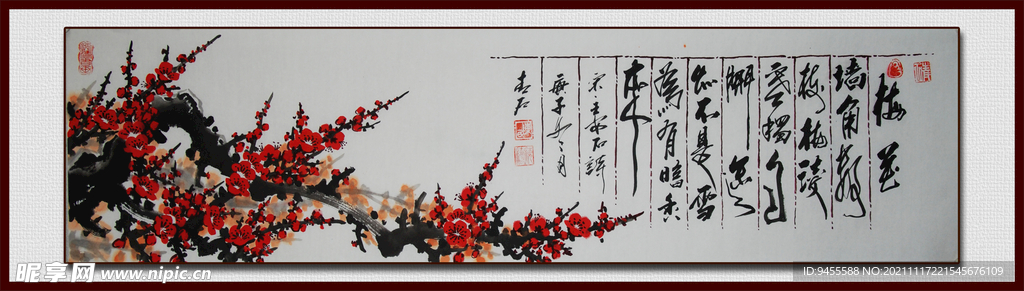 梅花
墙角數
枝梅凌
寒獨自
開遥
知不是雪
為有暗香
來
宋王安石詩
庚子 月
昵享网 www.nipic.cn
ID:9455588 NO:20211117221545676109